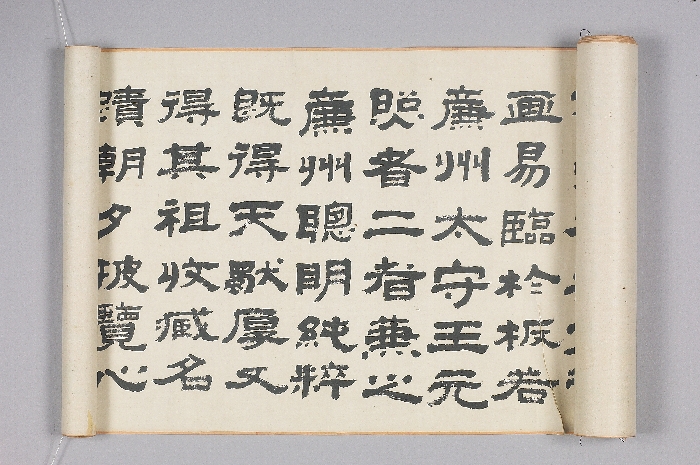 画易臨於板若
廉州太守王元
照者二者兼之
廉州聰明純粹
既得天猷厚又
得其祖收藏名
蹟朝夕披覽心